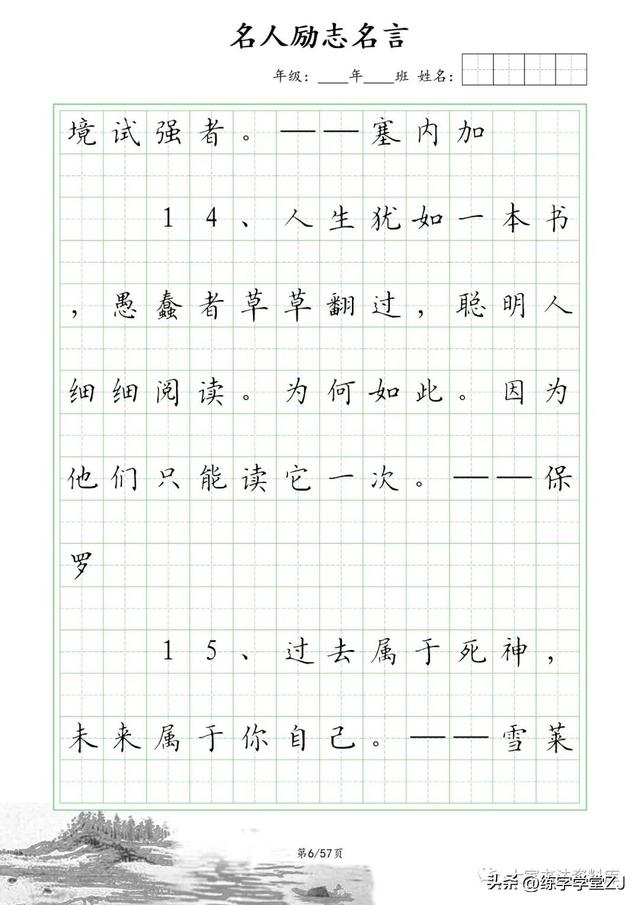 名人励志名言
年级：____年____班 姓名：
境试强者。——塞内加
14、人生犹如一本书
，愚蠢者草草翻过，聪明人
细细阅读。为何如此。因为
他们只能读它一次。——保
罗
15、过去属于死神，
未来属于你自己。——雪莱
第6/57页
头条@练字学堂ZJ